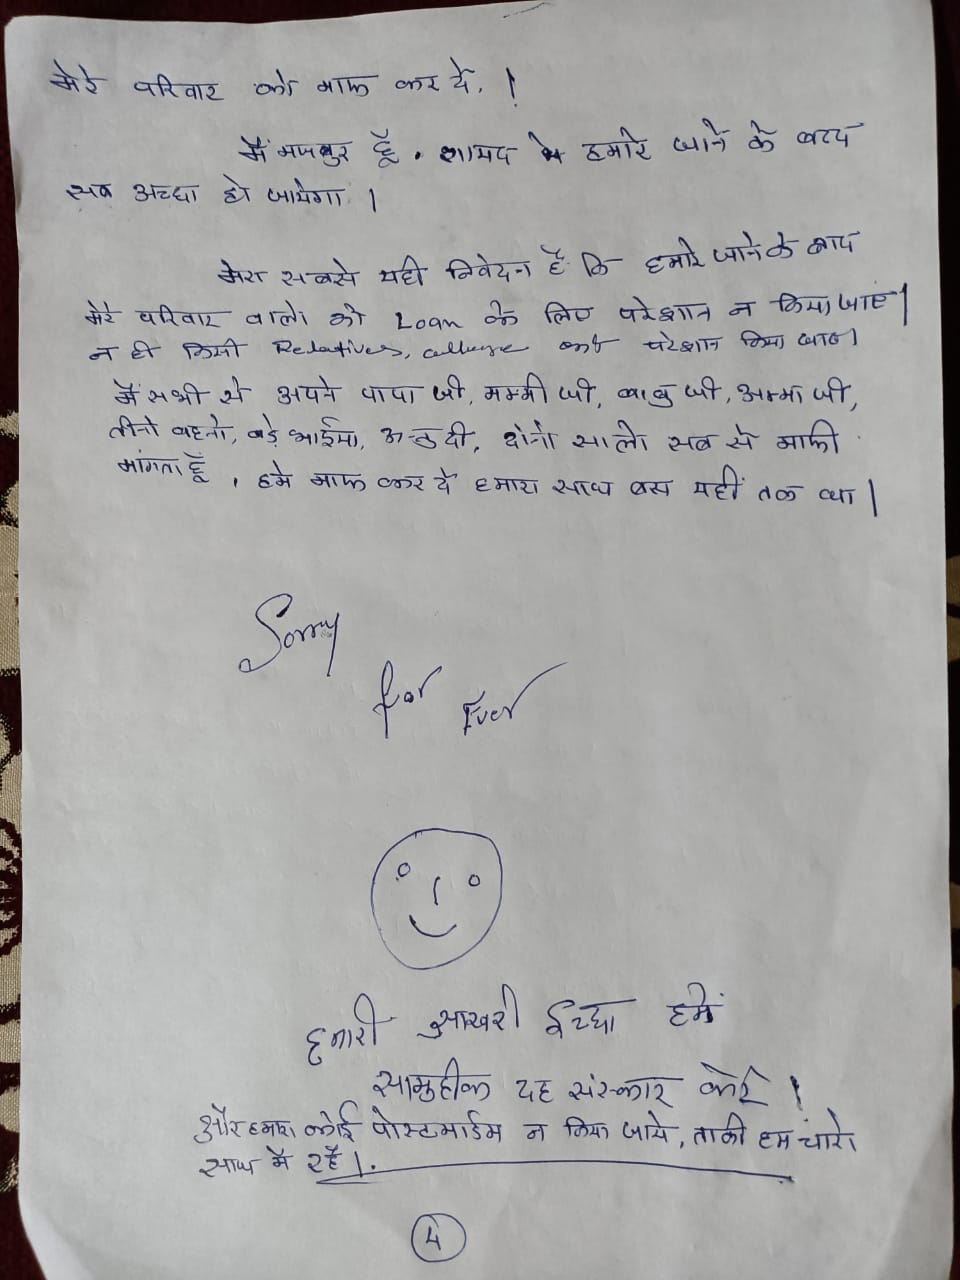 मेरे परिवार को माफ कर दें, !
मैं मजबुर हूँ . शायद हमारे जाने के बाद
सब अच्छा हो जायेगा ।
मेरा सबसे यही निवेदन है कि हमारे जाने के बाद
मेरे परिवार वालो को Loan के लिए परेशान न किया जाए।
न ही किसी Relatives, को परेशान किया जाए।
मैं सभी से अपने पापा जी, मम्मी जी, बाबु जी, अम्मा जी,
तीनो बहनो, बड़े भाईया, दी, दोनो सालो सब से माफी
मांगता हूँ , हमे माफ कर दें हमारा साथ बस यहीं तक था।
Sorry
for Ever
हमारी आखरी ईच्छा हमें
सामुहीक दाह संस्कार करें !
और हमारा कोई पोस्टमार्डम न किया जाये, ताकी हम चारो
साथ में रहें।.
4